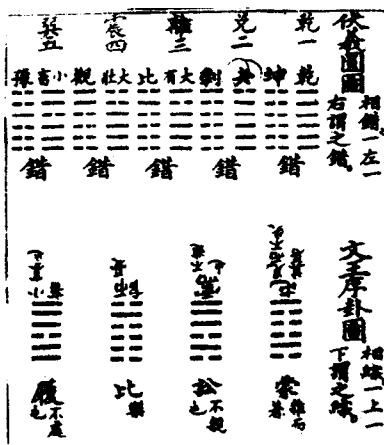 伏羲圓圖
相錯一左一
右謂之錯。
乾一
兌二
離三
震四
巽五
乾
坤
夬
剝
大有
比
大壯
觀
小畜
豫
錯
錯
錯
錯
錯
文王序卦圖
相綜一上一
下謂之綜。
屯見而不失其居
蒙雜而著
需不進也
訟不親也
師憂
比樂
小畜寡也
履不處也